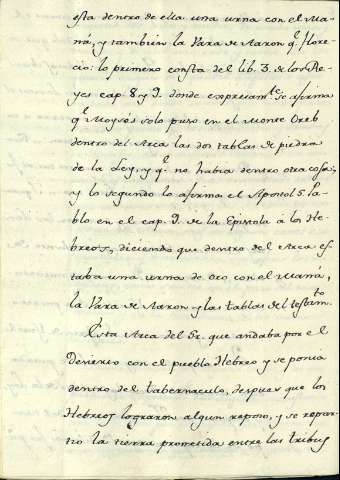 esta dentro de ella una urna con el Ma-
ná, y tambien la Vara de Aaron q.e flore-
cio: lo primero consta del lib. 3. de los Re-
yes cap. 8 y 9. donde expresam.te se afirma
q.e Moyses solo puso en el Monte Oreb
dentro del Arca las dos tablas de piedra
de la Ley, y q.e no habia dentro otra cosa;
y lo segundo lo afirma el Apostol S. Pa-
blo en el cap. 9. de la Epistola á los He-
breos, diciendo que dentro del Arca es-
taba una urna de oro con el Maná,
la Vara de Aaron y las tablas del testim.to
Esta Arca del S.r que andaba por el
Desierto con el pueblo Hebreo y se ponia
dentro del tabernaculo, despues que los
Hebreos lograron algun reposo, y se repar-
tio la tierra prometida entre las tribus